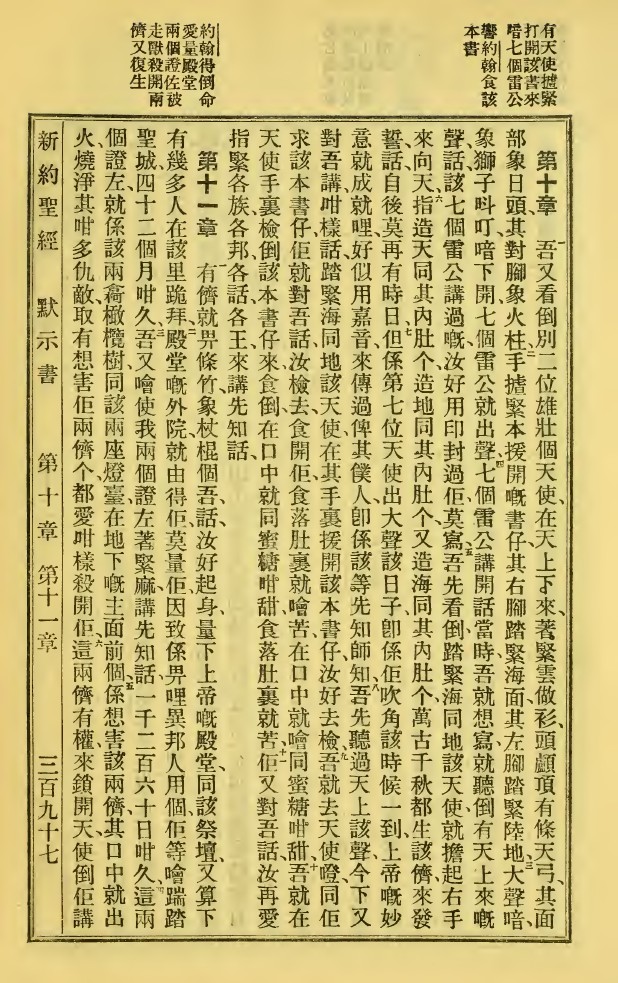 有天使摣緊
打開該書來
唶七個雷公
響約翰食該
本書
約翰得倒命
愛量殿堂
兩個證佐被
走獸殺開兩
儕又復生
第十章 一吾又看倒別二位雄壯個天使、在天上下來、著緊雲做衫、頭顱頂有條天弓、其面
部象日頭、其對腳象火柱、二手摣緊本援開嘅書仔、其右腳踏緊海面、其左腳踏緊陸地、三大聲喑、
象獅子呌叮喑下開、七個雷公就出聲、四七個雷公講開話當時、吾就想寫、就聽倒有天上來嘅
聲話、該七個雷公講過嘅、汝好用印封過佢、莫寫、五吾先看倒踏緊海同地該天使、就擔起右手
來向天、六指造天同其內肚个、造地同其內肚个、又造海同其內肚个、萬古千秋都生該儕來發
誓話、自後莫再有時日、七但係第七位天使出大聲該日子、卽係佢吹角該時候一到、上帝嘅妙
意就成就哩、好似用嘉音來傳過俾其僕人、卽係該等先知師知、八吾先聽過天上該聲、今下又
對吾講咁樣話、踏緊海同地該天使、在其手裏援開該本書仔、汝好去檢、九吾就去天使嶝、同佢
求該本書仔、佢就對吾話、汝檢去食開佢、食落肚裏就噲苦、在口中就噲同蜜糖咁甜、十吾就在
天使手裏檢倒該本書仔來食倒、在口中就同蜜糖咁甜、食落肚裏就苦、十一佢又對吾話、汝再愛
指緊各族各邦各話各王來講先知話、
第十一章 一有儕就畀條竹象杖棍個吾、話、汝好起身、量下上帝嘅殿堂、同該祭壇、又算下
有幾多人在該里跪拜、二殿堂嘅外院就由得佢、莫量佢、因致係畀哩異邦人用個、佢等噲踹踏
聖城、四十二個月咁久、三吾又噲使我兩個證左、著緊麻、講先知話、一千二百六十日咁久、四這兩
個證左、就係該兩喬橄欖樹、同該兩座燈臺、在地下嘅主面前個、五係想害該兩儕、其口中就出
火、燒淨其咁多仇敵、取有想害佢兩儕个、都愛咁樣殺開佢、六這兩儕有權來鎖開天、使倒佢講
新約聖經 默示書 第十章 第十一章 三百九十七